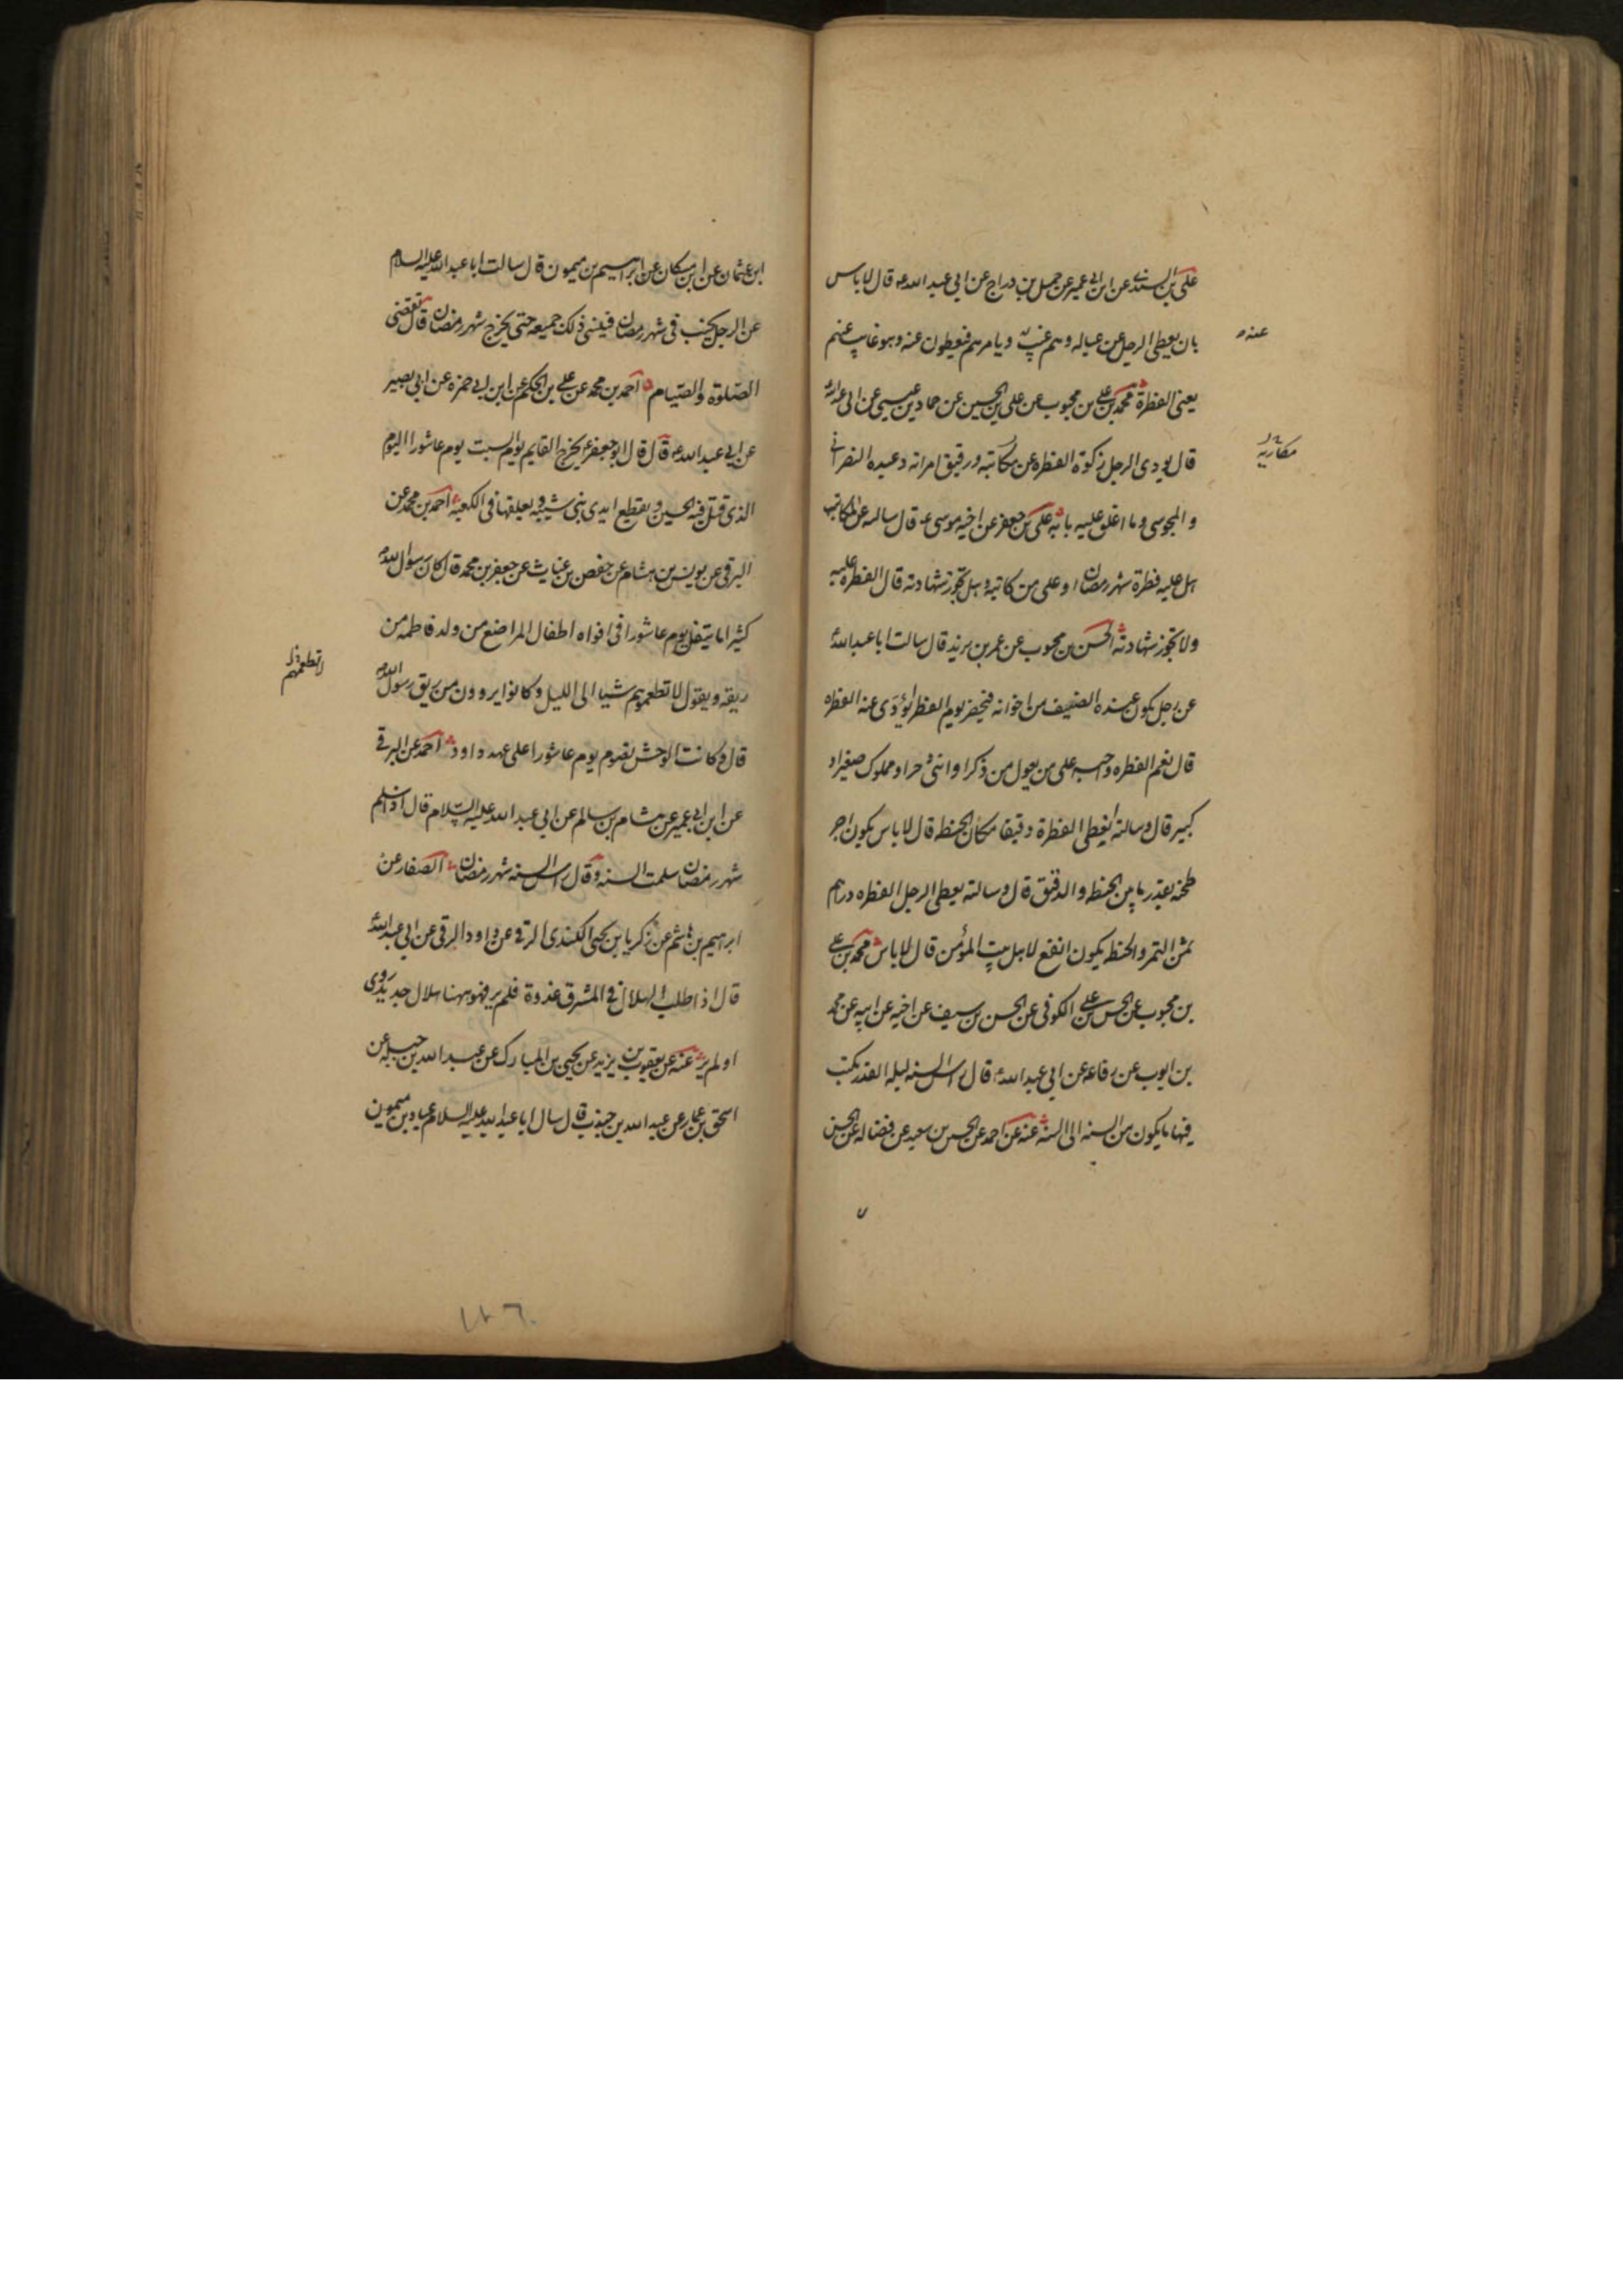 علي بن السندي عن ابن ابي عمير عن جميل بن دراج عن ابي عبد الله ع قال لا باس
بان يعطي الرجل عن عياله وهم غيب عنه ويامرهم فيعطون عنه وهو غايب عنهم
عنه
يعني الفطرة محمد بن علي بن محبوب عن علي بن الحسين عن حماد بن عيسى عن ابي عبد الله
قال يودي الرجل زكوة الفطره عن مكاتبه ورقيق امراته وعبده النصراني
والمجوسي وما اغلق عليه بابه علي بن جعفر عن اخيه موسى ع قال سالته عن المكاتب
هل عليه فطرة شهر رمضان او على من كاتبه وهل تجوز شهادته قال الفطره عليه
ولا تجوز شهادته الحسن بن محبوب عن عمر بن يزيد قال سالت ابا عبد الله
عن رجل يكون عنده الضيف من اخوانه فيحضر يوم الفطر يؤدى عنه الفطره
قال نعم الفطره واجب على من يعول من ذكر او انثى حر او مملوك صغير او
كبير قال وسالته ايعطي الفطرة دقيقا مكان الحنطه قال لا باس يكون اجر
طحنه بقدر ما بين الحنطه والدقيق قال وسالته يعطي الرجل الفطره دراهم
ثمن التمر والحنطه يكون انفع لاهل بيت المؤمن قال لا باس محمد بن علي
بن محبوب عن الحسن بن علي الكوفي عن الحسن بن سيف عن اخيه عن ابيه عن محمد
بن ايوب عن رفاعه عن ابي عبد الله قال راس السنه ليله القدر يكتب
فيها ما يكون من السنه الى السنه عنه عن احمد عن الحسين بن سعيد عن فضاله عن الحسين
ابن عثمان عن ابن مسكان عن ابراهيم بن ميمون قال سالت ابا عبد الله عليه السلام
عن الرجل يجنب في شهر رمضان فينسى ذلك جميعه حتى يخرج شهر رمضان قال يقضي
الصلوة والصيام احمد بن محمد عن علي بن الحكم عن ابن ابي حمزه عن ابي بصير
عن ابي عبد الله ع قال قال ابو جعفر ع يخرج القايم يوم السبت يوم عاشورا اليوم
الذي قتل فيه الحسين ويقطع ايدي بني شيبه ويعلقها في الكعبه احمد بن محمد عن
البرقي عن يونس بن هشام عن حفص بن غياث عن جعفر بن محمد قال كان رسول الله
كثيرا ما يتفل يوم عاشورا في افواه اطفال المراضع من ولد فاطمه من
ريقه ويقول لا تطعموهم شيا الى الليل وكانوا يروون من ريق رسول الله
لا تطعمهم
قال وكانت الوحش تصوم يوم عاشورا على عهد داود احمد عن البرقي
عن ابن ابي عمير عن هشام بن سالم عن ابي عبد الله عليه السلام قال اذا سلم
شهر رمضان سلمت السنه وقال راس السنه شهر رمضان الصفار عن
ابرهيم بن هاشم عن زكريا بن يحيى الكندي الرقي عن داود الرقي عن ابي عبد الله
قال اذا طلب الهلال في المشرق غدوة فلم ير فهو ههنا هلال جديد روي
او لم ير عنه عن يعقوب بن يزيد عن يحيى بن المبارك عن عبد الله بن جبله عن
اسحق بن عمار عن عبد الله بن قال سال ابا عبد الله عليه السلام عباد بن ميمون